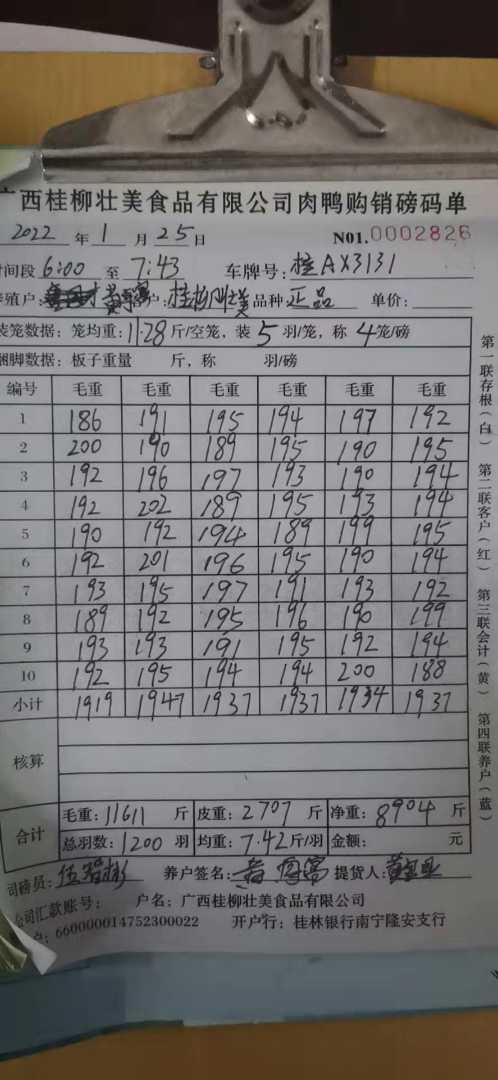 广西桂柳壮美食品有限公司肉鸭购销磅码单
2022 年 1 月 25 日 N01.0002826
时间段 6:00 至 7:43 车牌号: 桂AX3131
养殖户: 户: 桂柳壮美 品种 正品 单价:
装笼数据: 笼均重: 11.28 斤/空笼, 装 5 羽/笼, 称 4 笼/磅
捆脚数据: 板子重量 斤, 称 羽/磅
编号 毛重 毛重 毛重 毛重 毛重 毛重
1 186 191 195 194 197 192
2 200 190 189 195 190 195
3 192 196 197 193 190 194
4 192 202 189 195 193 194
5 190 192 194 189 199 195
6 192 201 196 195 190 194
7 193 195 197 191 193 192
8 189 192 195 196 190 199
9 193 193 191 195 192 194
10 192 195 194 194 200 188
小计 1919 1947 1937 1937 1934 1937
核算
合计 毛重: 11611 斤 皮重: 2707 斤 净重: 8904 斤
总羽数: 1200 羽 均重: 7.42 斤/羽 金额: 元
司磅员: 养户签名: 提货人:
公司汇款账号: 户名: 广西桂柳壮美食品有限公司
户: 660000014752300022 开户行: 桂林银行南宁隆安支行
第一联存根(白) 第二联客户(红) 第三联会计(黄) 第四联养户(蓝)